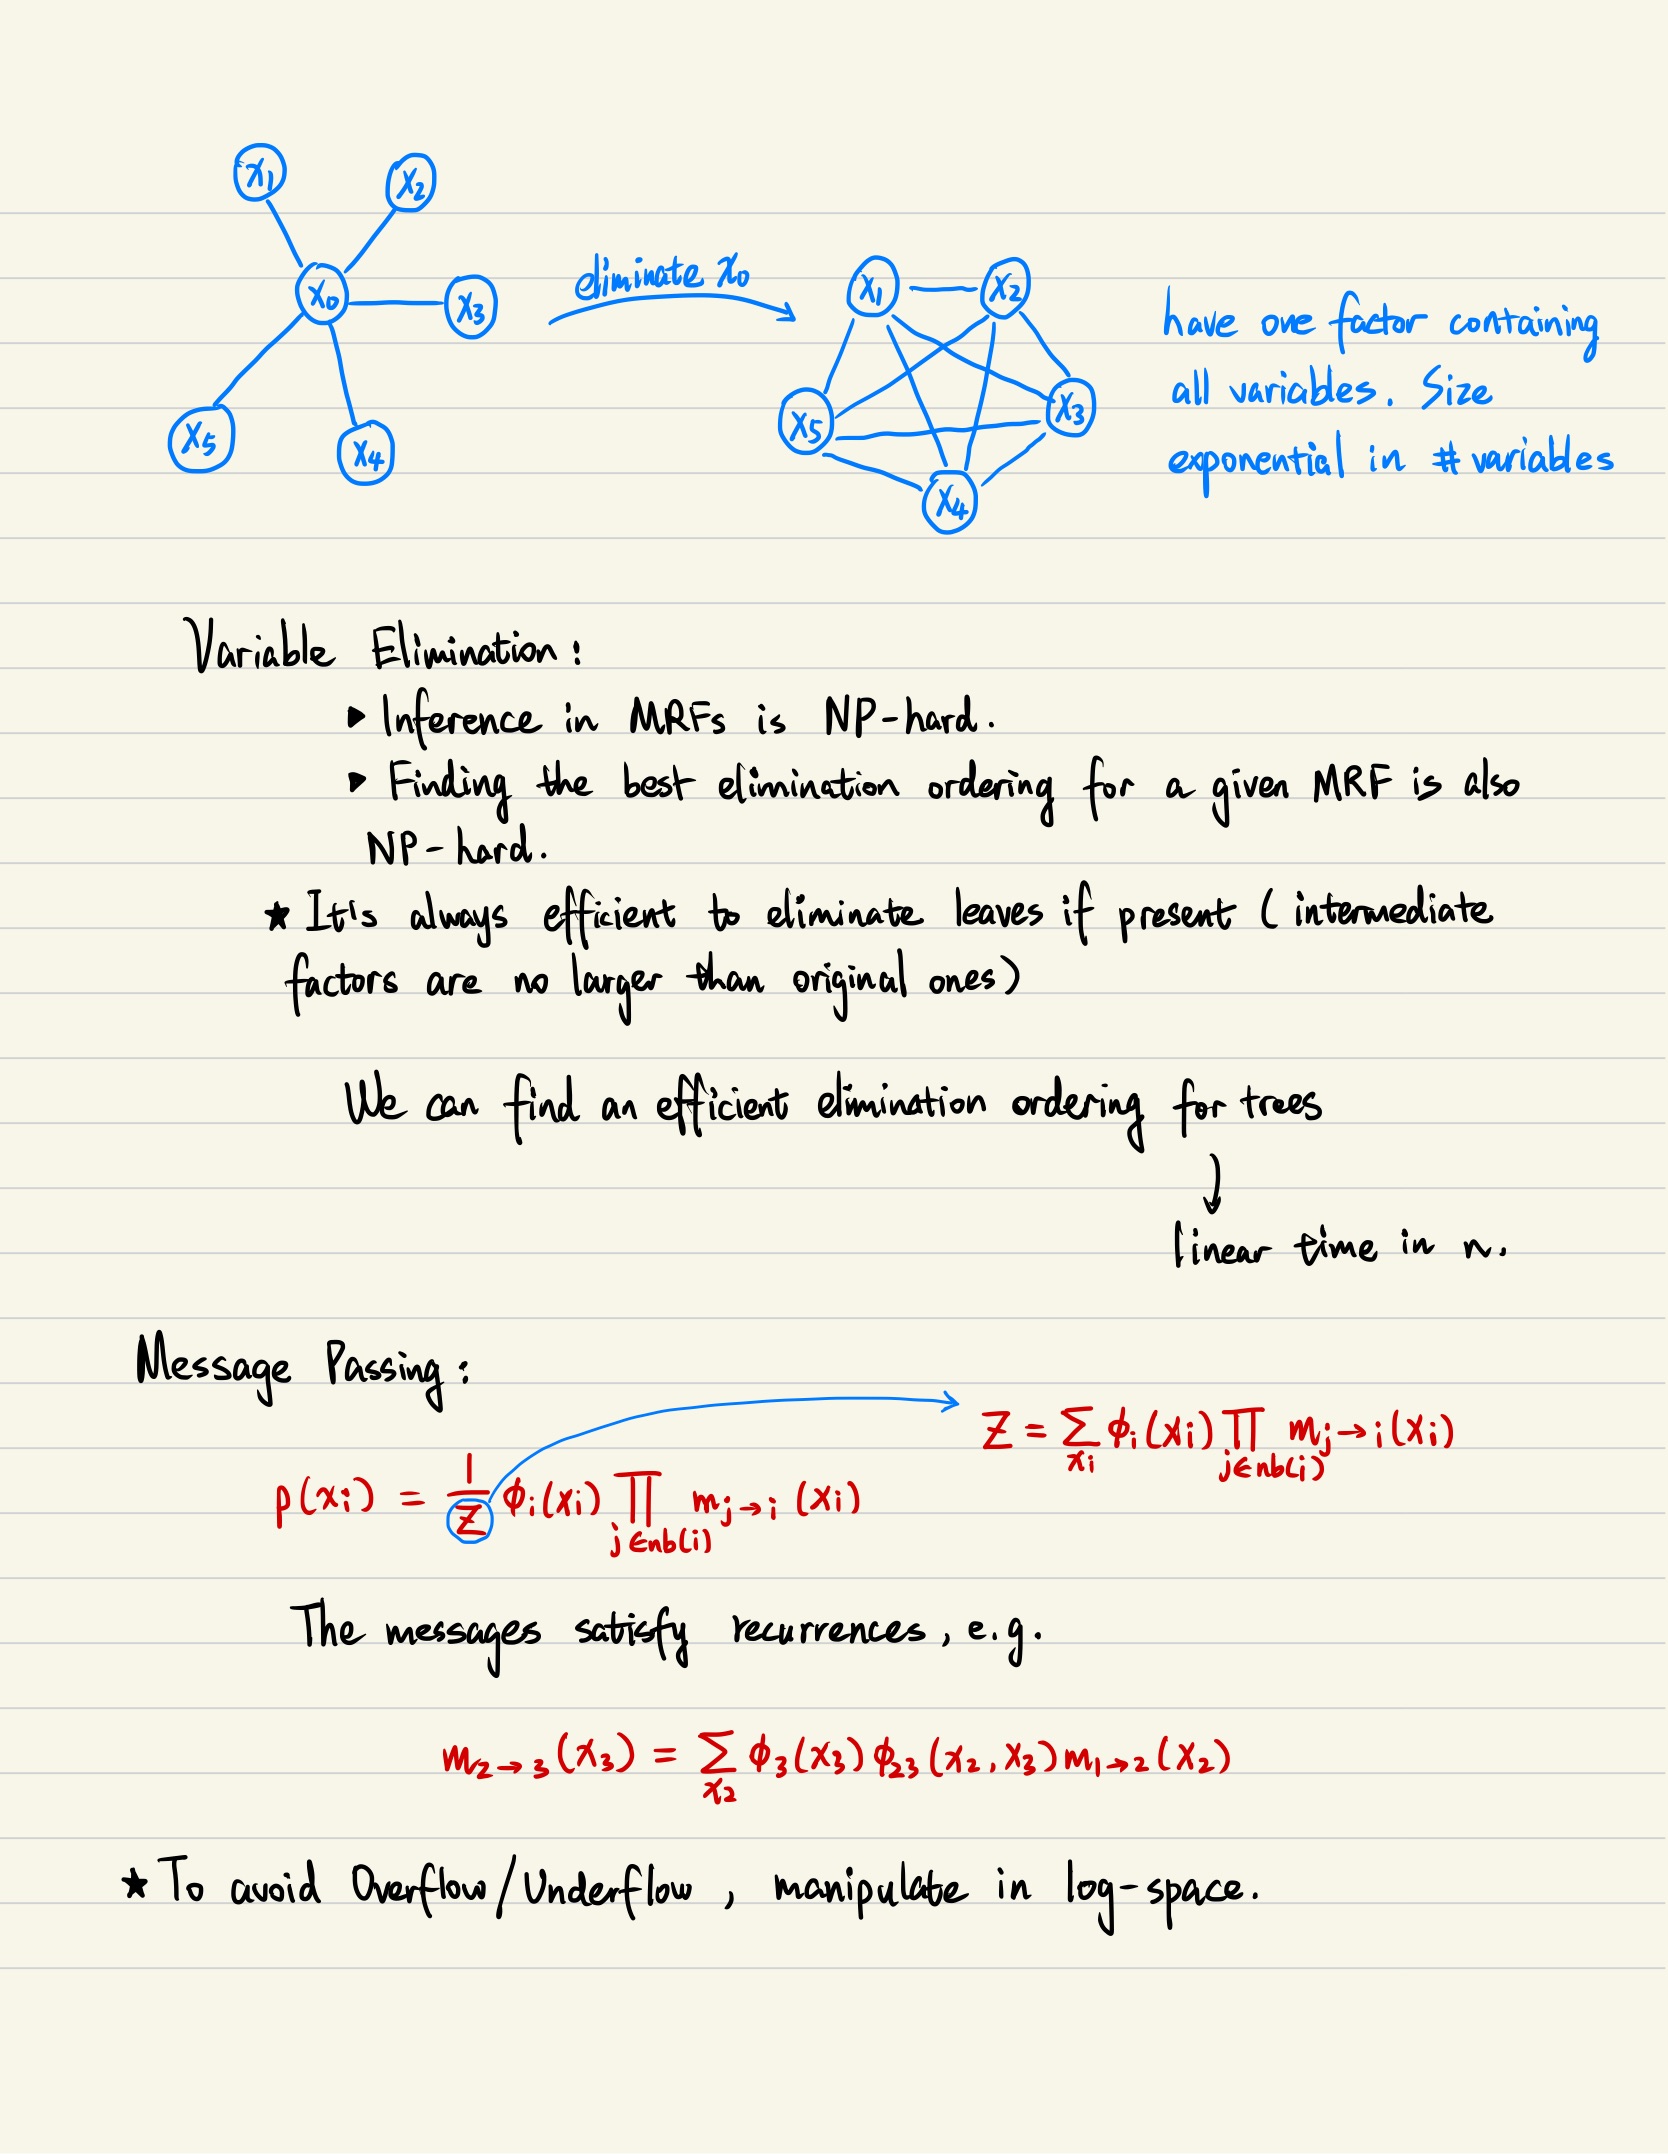 x₁ x₂
x₀ x₃
x₅ x₄
eliminate x₀
x₁ x₂
x₅ x₃
x₄
have one factor containing
all variables. Size
exponential in # variables
Variable Elimination:
▶ Inference in MRFs is NP-hard.
▶ Finding the best elimination ordering for a given MRF is also
NP-hard.
★ It's always efficient to eliminate leaves if present (intermediate
factors are no larger than original ones)
We can find an efficient elimination ordering for trees
↓
linear time in n.
Message Passing:
Z = Σ_{xᵢ} ϕᵢ(xᵢ) ∏_{j∈nb(i)} m_{j→i}(xᵢ)
p(xᵢ) = 1/Z ϕᵢ(xᵢ) ∏_{j∈nb(i)} m_{j→i}(xᵢ)
The messages satisfy recurrences, e.g.
m_{2→3}(x₃) = Σ_{x₂} ϕ₃(x₃) ϕ₂₃(x₂, x₃) m_{1→2}(x₂)
★ To avoid Overflow/Underflow, manipulate in log-space.